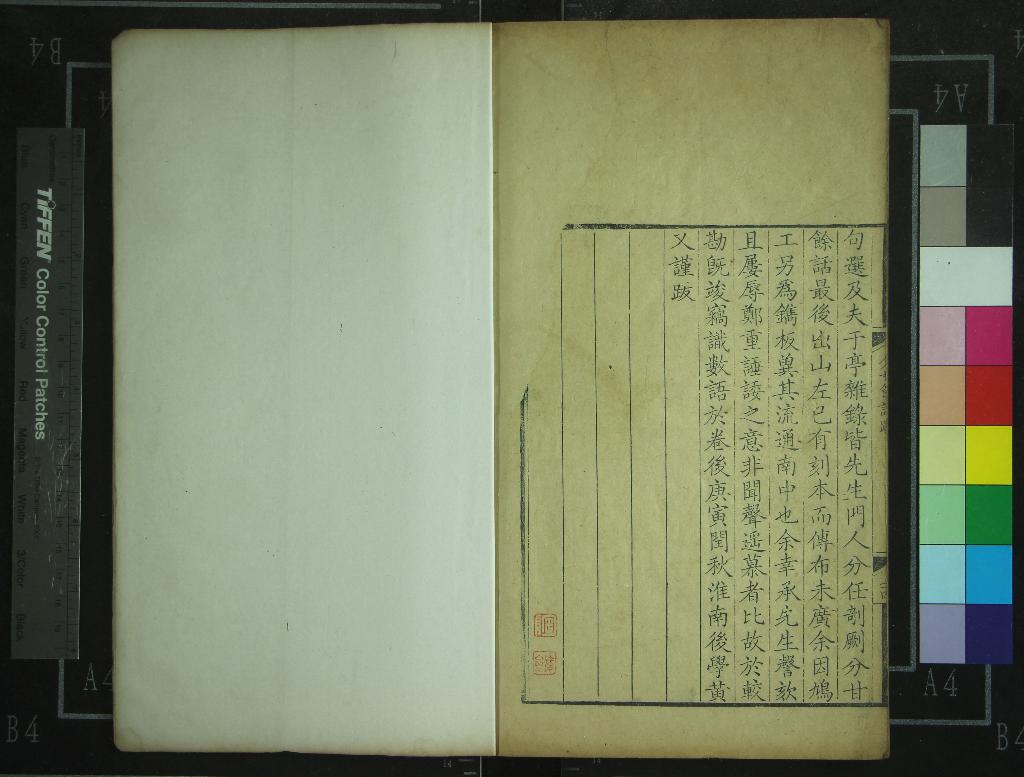 句選及夫于亭雜錄皆先生門人分任剞劂分甘
餘話最後出山左已有刻本而傳布未廣余因鳩
工另爲鐫板兾其流通南中也余幸承先生謦欬
且屢辱鄭重諈諉之意非聞聲遥慕者比故於較
勘旣竣竊識數語於卷後庚寅閏秋淮南後學黃
又謹跋
TIFFEN Color Control Patches
Blue
Cyan
Green
Yellow
Red
Magenta
White
3/Color
Black
B4
A4
A4
B4
A4
B4